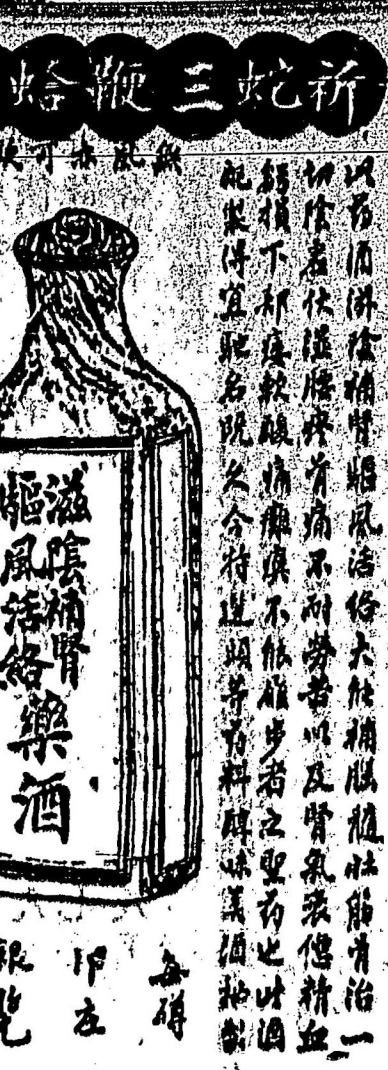 祈蛇三鞭蛤
無風亦可飲
此药酒滋陰補腎驅風活络大能補腦髓壯筋骨治一
切陰虛伏濕腰疼骨痛不耐勞苦以及腎氣衰儃精血
虧損下部痿軟酸痛癱瘓不能履步者之聖药也此酒
配製得宜馳名既久今特選頭等药料醇味美酒秘製
滋陰補腎
驅風活絡
藥酒
每磚
印左